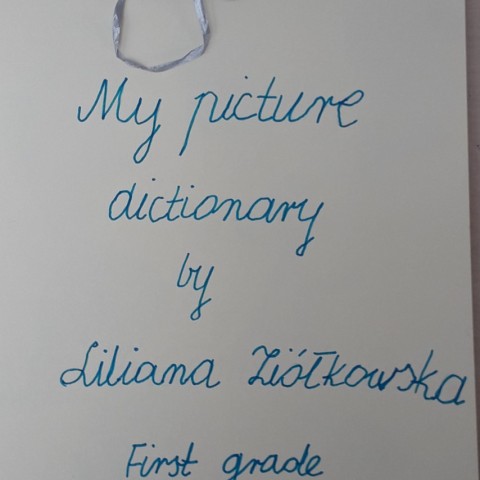 My picture
dictionary
by
Liliana Ziółkowska
First grade